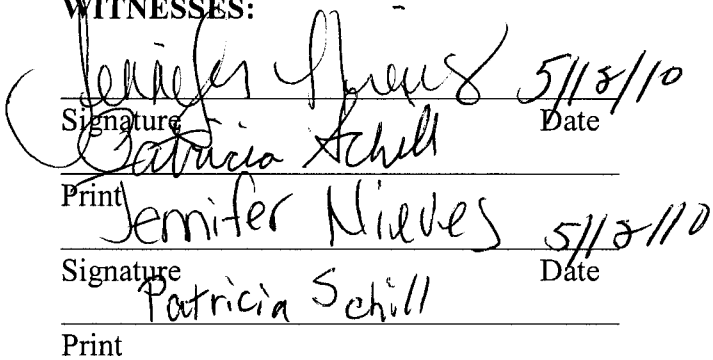 WITNESSES:
Jennifer Nieves 5/18/10
Signature Date
Patricia Schill
Print
Jennifer Nieves 5/18/10
Signature Date
Patricia Schill
Print